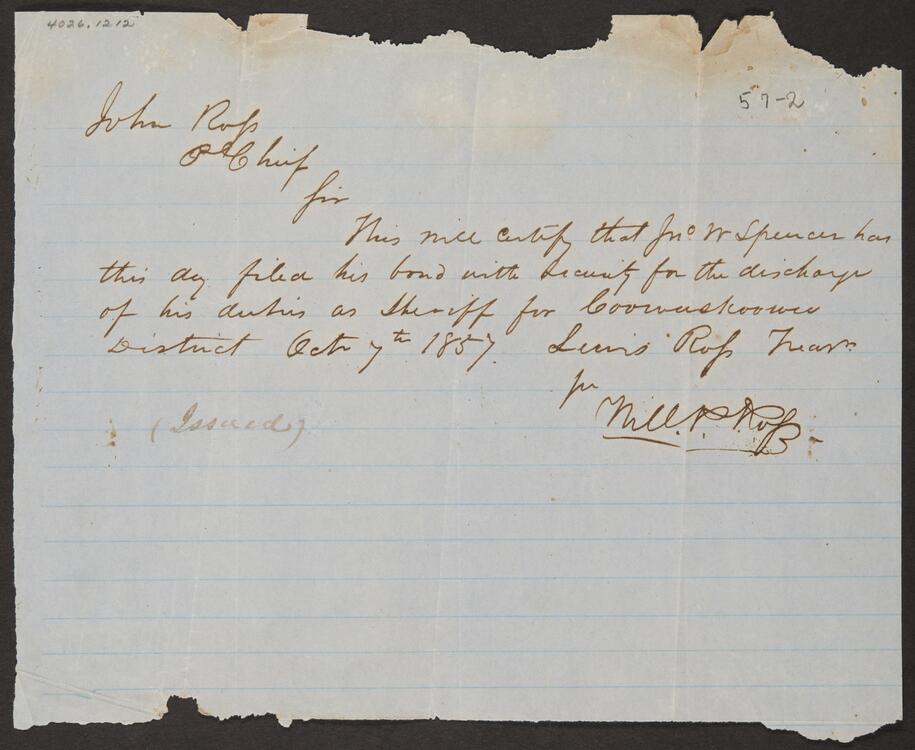 4026.1212
57-2
John Ross
Pl Chief
Sir
This will certify that Jno W Spencer has
this day filed his bond with security for the discharge
of his duties as Sheriff for Coowaskoowee
District Octr 7th 1857. Lewis Ross Treasr
pr
Will. P. Ross
(Issued)